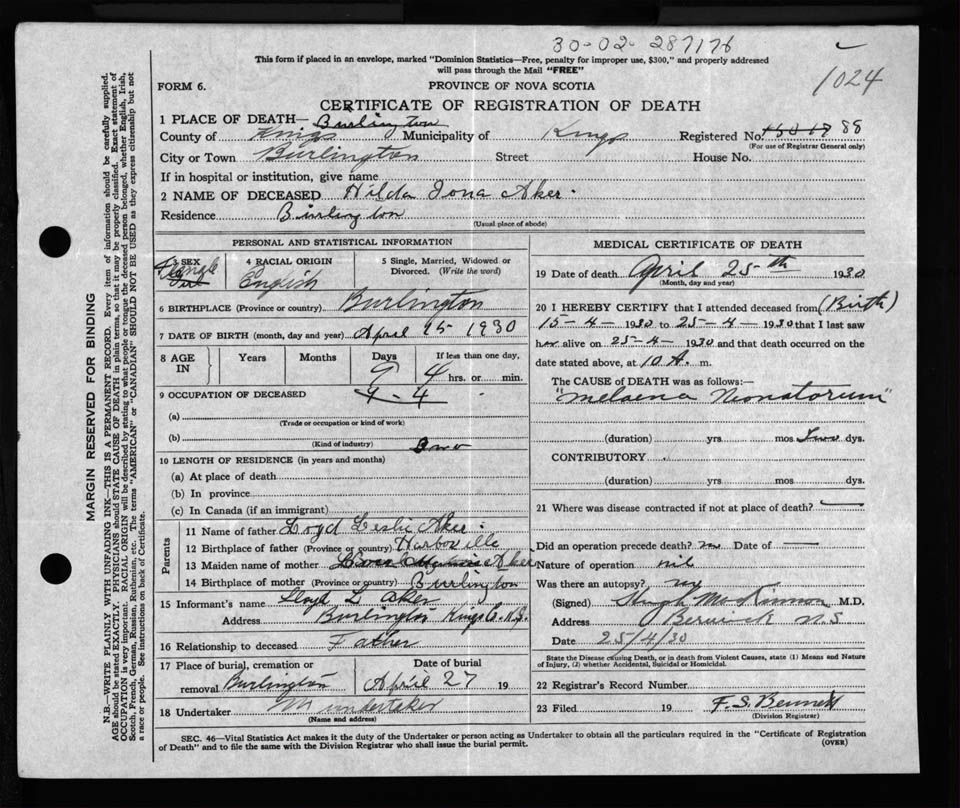 30-02-287176
1024
This form if placed in an envelope, marked "Dominion Statistics—Free, penalty for improper use, $300," and properly addressed
will pass through the Mail "FREE"
FORM 6.
PROVINCE OF NOVA SCOTIA
CERTIFICATE OF REGISTRATION OF DEATH
1 PLACE OF DEATH— Burlington
County of Kings Municipality of Kings Registered No. 88
(For use of Registrar General only)
City or Town Burlington Street House No.
If in hospital or institution, give name
2 NAME OF DECEASED Hilda Iona Aker
Residence Burlington
(Usual place of abode)
PERSONAL AND STATISTICAL INFORMATION
3 SEX
4 RACIAL ORIGIN
English
5 Single, Married, Widowed or
Divorced. (Write the word)
6 BIRTHPLACE (Province or country) Burlington
7 DATE OF BIRTH (month, day and year) April 15 1930
8 AGE IN
Years Months Days If less than one day,
9 4 hrs. or min.
9 OCCUPATION OF DECEASED 9-4
(a)
(Trade or occupation or kind of work)
(b)
(Kind of industry)
10 LENGTH OF RESIDENCE (in years and months)
(a) At place of death
(b) In province
(c) In Canada (if an immigrant)
Parents
11 Name of father Loyd Leslie Aker
12 Birthplace of father (Province or country) Harboville
13 Maiden name of mother Aker
14 Birthplace of mother (Province or country) Burlington
15 Informant's name Lloyd L Aker
Address Burlington Kings Co. N.S.
16 Relationship to deceased Father
17 Place of burial, cremation or
removal Burlington
Date of burial
April 27 19
18 Undertaker undertaker
(Name and address)
MEDICAL CERTIFICATE OF DEATH
19 Date of death April 25th 1930
(Month, day and year)
20 I HEREBY CERTIFY that I attended deceased from (Birth)
15-4-1930 to 25-4-1930 that I last saw
her alive on 25-4-1930 and that death occurred on the
date stated above, at 10 A. m.
The CAUSE OF DEATH was as follows:—
"Melaena Neonatorum"
(duration) yrs mos Two dys.
CONTRIBUTORY
(duration) yrs. mos. dys.
21 Where was disease contracted if not at place of death? —
Did an operation precede death? no Date of —
Nature of operation nil
Was there an autopsy? no
(Signed) Hugh McKinnon M.D.
Address Berwick N.S
Date 25/4/30
State the Disease causing Death, or in death from Violent Causes, state (1) Means and Nature
of Injury, (2) whether Accidental, Suicidal or Homicidal.
22 Registrar's Record Number
23 Filed 19 F. S. Bennett
(Division Registrar)
SEC. 46—Vital Statistics Act makes it the duty of the Undertaker or person acting as Undertaker to obtain all the particulars required in the "Certificate of Registration
of Death" and to file the same with the Division Registrar who shall issue the burial permit.
(OVER)
MARGIN RESERVED FOR BINDING
N.B.—WRITE PLAINLY WITH UNFADING INK—THIS IS A PERMANENT RECORD. Every item of information should be carefully supplied.
AGE should be stated EXACTLY. PHYSICIANS should STATE CAUSE OF DEATH in plain terms, so that it may be properly classified. Exact statement of
OCCUPATION is very important. RACIAL ORIGIN will be described by stating to what people or tongue the deceased person belonged, whether English, Irish,
Scotch, French, German, Russian, Ruthenian, etc. The terms "AMERICAN" or "CANADIAN" SHOULD NOT BE USED as they express citizenship but not
a race or people. See instructions on back of Certificate.